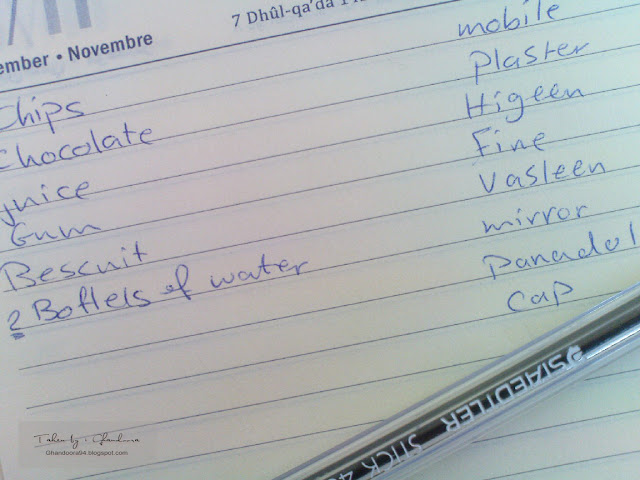 ember • Novembre
7 Dhûl-qa'da
chips
chocolate
juice
Gum
Bescuit
2 Bottels of water
mobile
Plaster
Higeen
Fine
Vasleen
mirror
Panadol
Cap
STAEDTLER STICK
Taken by : Ghandoora
Ghandoora94.blogspot.com